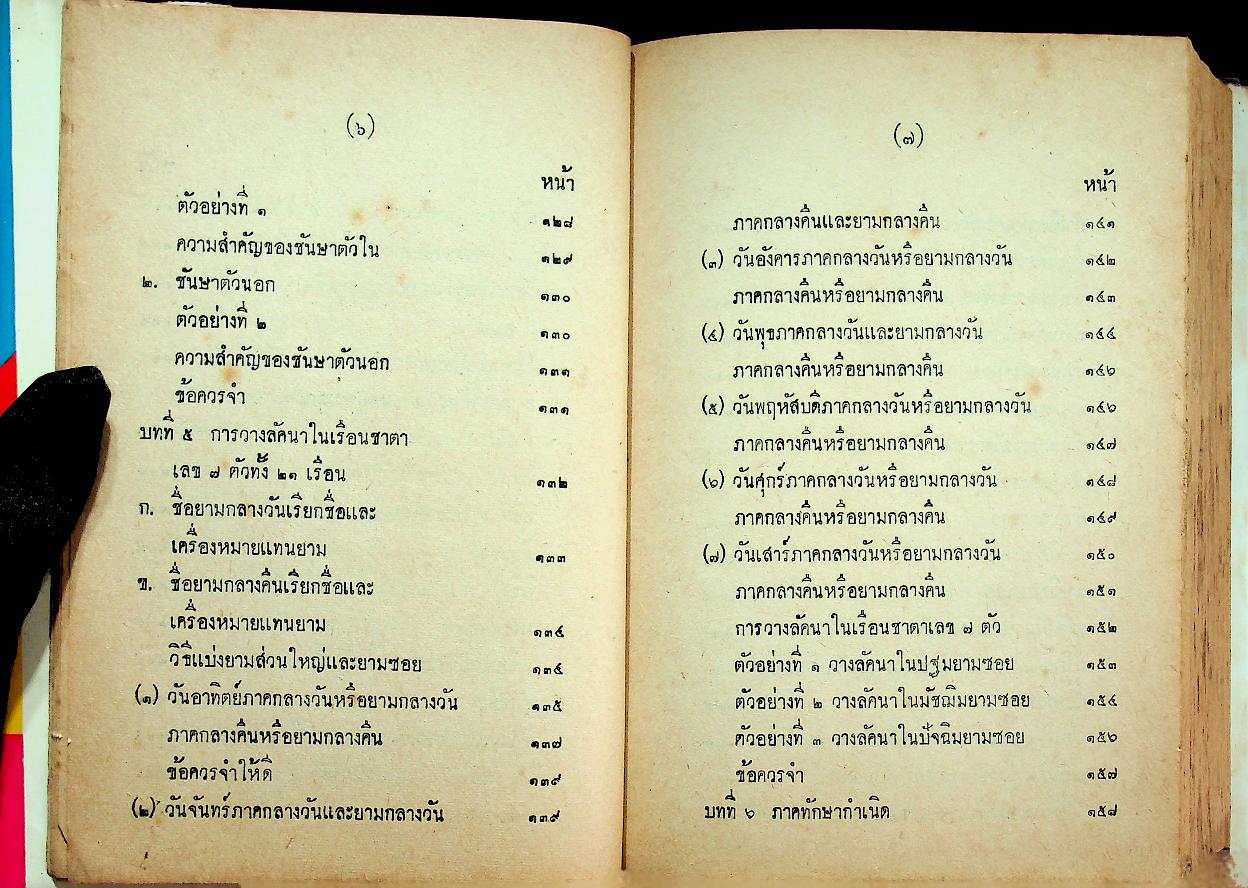 (๖)
หน้า
ตัวอย่างที่ ๑ ๑๒๘
ความสำคัญของชันษาตัวใน ๑๒๙
๒. ชันษาตัวนอก ๑๓๐
ตัวอย่างที่ ๒ ๑๓๐
ความสำคัญของชันษาตัวนอก ๑๓๑
ข้อควรจำ ๑๓๑
บทที่ ๕ การวางลัคนาในเรือนชาตา
เลข ๗ ตัวทั้ง ๒๑ เรือน ๑๓๒
ก. ชื่อยามกลางวันเรียกชื่อและ
เครื่องหมายแทนยาม ๑๓๓
ข. ชื่อยามกลางคืนเรียกชื่อและ
เครื่องหมายแทนยาม ๑๓๔
วิธีแบ่งยามส่วนใหญ่และยามซอย ๑๓๔
(๑) วันอาทิตย์ภาคกลางวันหรือยามกลางวัน ๑๓๕
ภาคกลางคืนหรือยามกลางคืน ๑๓๗
ข้อควรจำให้ดี ๑๓๙
(๒) วันจันทร์ภาคกลางวันและยามกลางวัน ๑๓๙
(๗)
หน้า
ภาคกลางคืนและยามกลางคืน ๑๔๑
(๓) วันอังคารภาคกลางวันหรือยามกลางวัน ๑๔๒
ภาคกลางคืนหรือยามกลางคืน ๑๔๓
(๔) วันพุธภาคกลางวันและยามกลางวัน ๑๔๔
ภาคกลางคืนหรือยามกลางคืน ๑๔๖
(๕) วันพฤหัสบดีภาคกลางวันหรือยามกลางวัน ๑๔๖
ภาคกลางคืนหรือยามกลางคืน ๑๔๗
(๖) วันศุกร์ภาคกลางวันหรือยามกลางวัน ๑๔๘
ภาคกลางคืนหรือยามกลางคืน ๑๔๙
(๗) วันเสาร์ภาคกลางวันหรือยามกลางวัน ๑๕๐
ภาคกลางคืนหรือยามกลางคืน ๑๕๑
การวางลัคนาในเรือนชาตาเลข ๗ ตัว ๑๕๒
ตัวอย่างที่ ๑ วางลัคนาในปฐมยามซอย ๑๕๓
ตัวอย่างที่ ๒ วางลัคนาในมัชฌิมยามซอย ๑๕๔
ตัวอย่างที่ ๓ วางลัคนาในปัจฉิมยามซอย ๑๕๖
ข้อควรจำ ๑๕๗
บทที่ ๖ ภาคทักษากำเนิด ๑๕๘